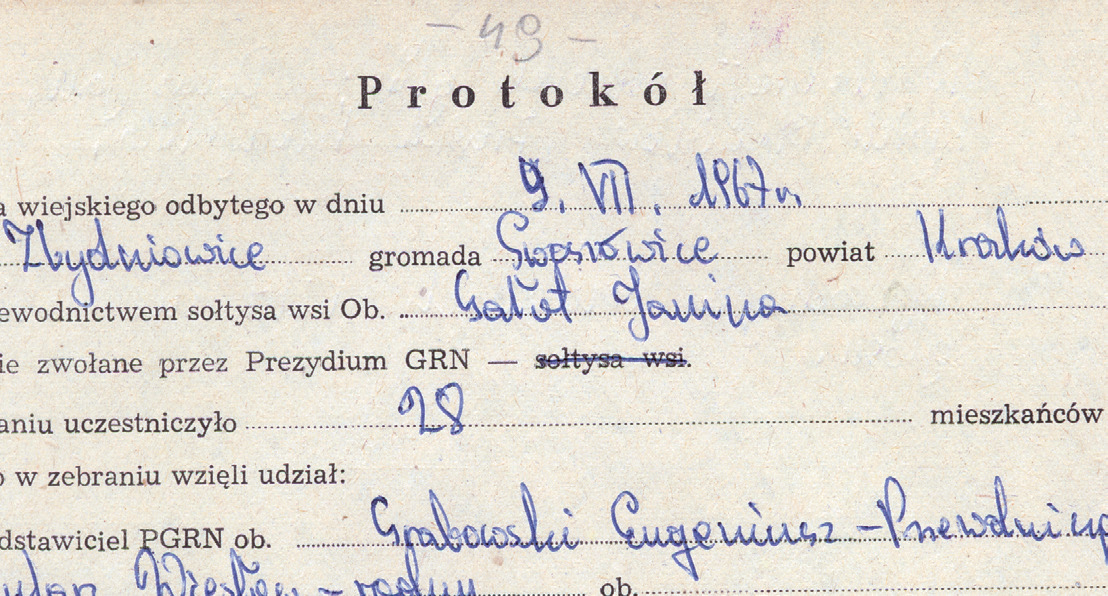 - 49 -
Protokół
a wiejskiego odbytego w dniu 9. VII. 1967 r.
Zbydniowice gromada Swoszowice powiat Kraków
ewodnictwem sołtysa wsi Ob. Gatot Janina
ie zwołane przez Prezydium GRN — sołtysa wsi.
aniu uczestniczyło 28 mieszkańców
o w zebraniu wzięli udział:
dstawiciel PGRN ob. Grabowski Eugeniusz - Przewodnicz
Wiesław - radny ob.